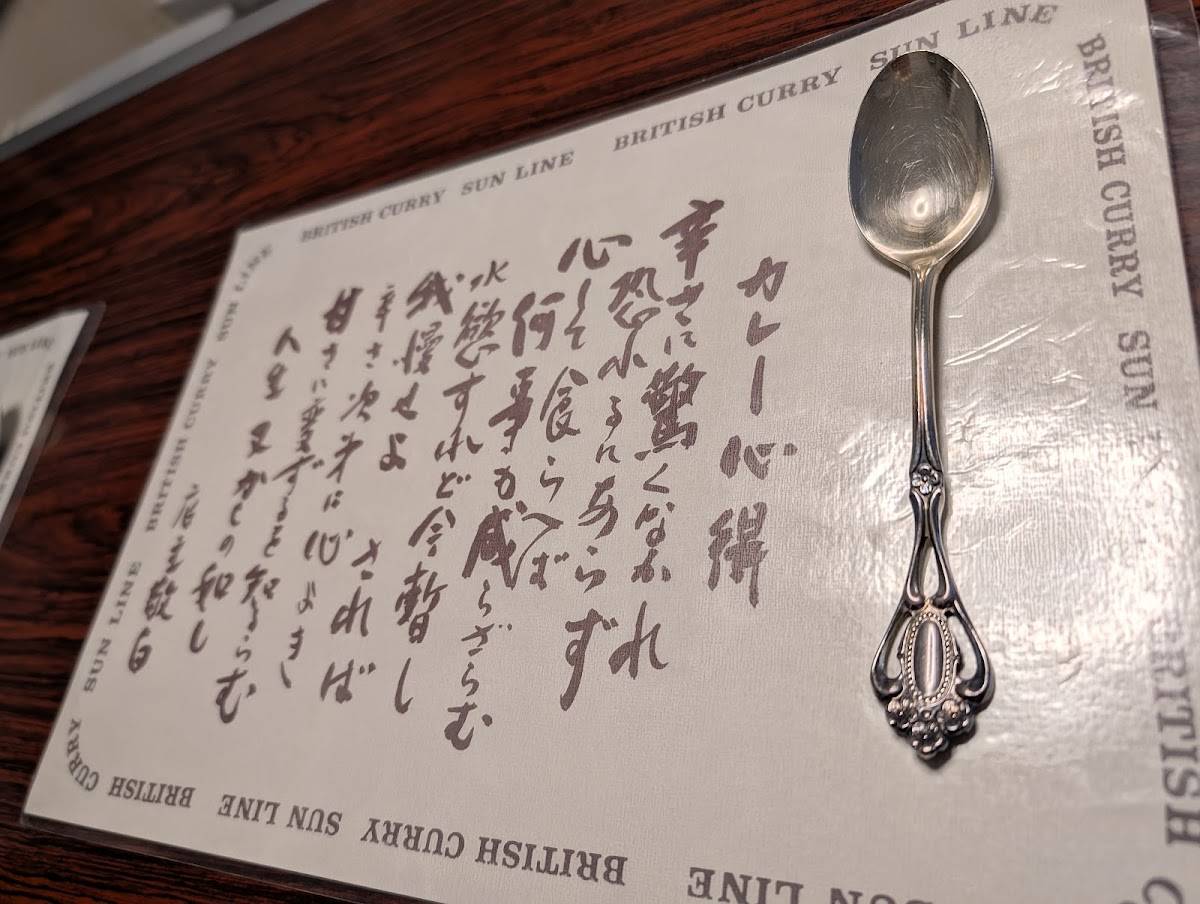 BRITISH CURRY SUN LINE BRITISH CURRY SUN LINE
BRITISH CURRY SUN
BRITISH
カレー心得
辛さに驚くなかれ
恐れるにあらず
心して食らへば
何事か成らざらむ
水慾すれど今暫し
我慢せよ されば
辛さ次才に心よき
甘さに変ずると知るらむ
人生又かくの如し
店主敬白
SUN LINE BRITISH CURRY SUN LINE BRITISH CURRY
SUN LINE BRITISH CURRY SUN LINE